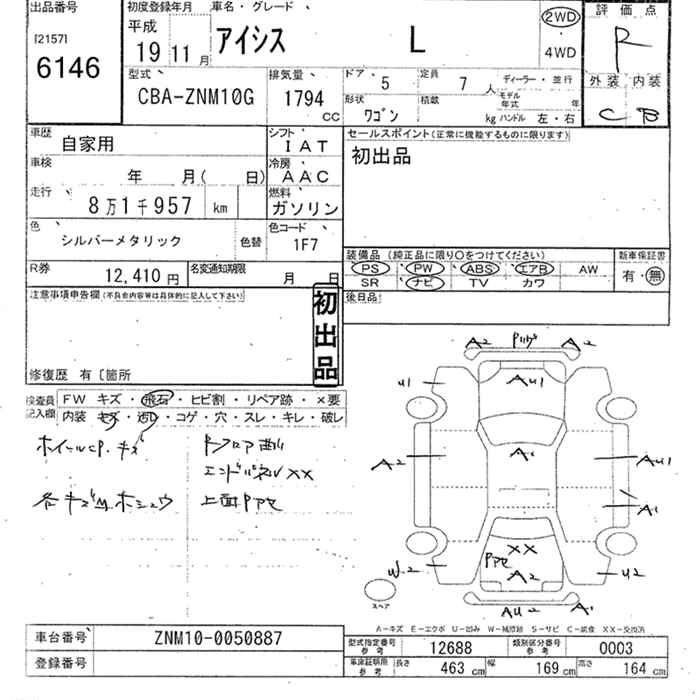 出品番号
[2157]
6146
初度登録年月
平成
19 11 月
車名・グレード
アイシス L
2WD
4WD
評価点
R
外装 内装
C B
型式
CBA-ZNM10G
排気量
1794
CC
ドア 5
定員 7 人
ディーラー・並行
形状
ワゴン
積載
kg
モデル年式
年
ハンドル 左・右
車歴 自家用
シフト
IAT
車検
年 月( 日)
冷房
AAC
走行
8万1千957 km
燃料
ガソリン
色
シルバーメタリック
色替
色コード
1F7
R券
12,410 円
名変通知期限
月 日
セールスポイント(正常に機能するものに限ります)
初出品
装備品(純正品に限り○をつけてください)
PS PW ABS エアB AW
SR ナビ TV カワ
新車保証書
有・無
後日品
注意事項申告欄(不具合内容等は具体的に記入して下さい)
初出品
修復歴 有〔箇所
検査員記入欄
FW キズ・飛石・ヒビ割・リペア跡・×要
内装 キズ・汚れ・コゲ・穴・スレ・キレ・破レ
ホイールCP.キズ
エンドパネルXX
各キズ凹ホシュウ
A2 A2
U1 AU1
A2 A1 AU1
A1
XX
W2 A2 U2
AU2 A1
スペア
A-キズ E-エクボ U-凹み W-補修跡 S-サビ C-腐食 XX-交換済
車台番号
ZNM10-0050887
登録番号
型式指定番号
参考
12688
類別区分番号
参考
0003
車庫証明用
参考
長さ 463 cm
幅 169 cm
高さ 164 cm